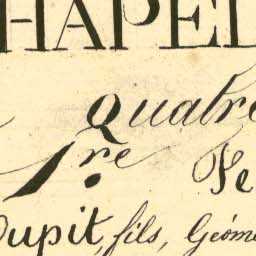 HAPEL
Quatre
1.re Fe
Dupit, fils, Géom